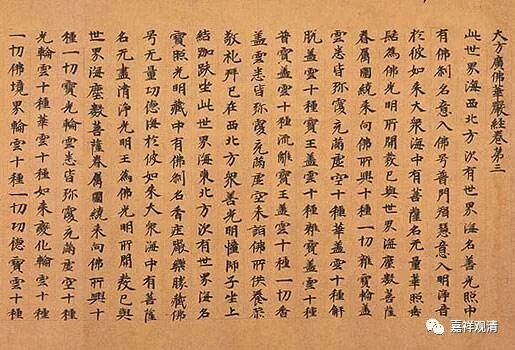 大方廣佛華嚴經卷第三
此世界海西北方次有世界海名善光照中
有佛剎名意入佛号普門智慧意入明淨音
於彼如来大衆海中有菩薩名无量華照垂
髻為佛光明所開發已與世界海塵數菩薩
眷属圍繞来向佛所興十種一切雜寶輪盖
雲悉皆弥覆充滿虚空十種華盖雲十種解
脱盖雲十種寶王盖雲十種雜寶盖雲十種
普寶盖雲十種流離寶王盖雲十種一切香
盖雲悉皆弥覆充滿虚空来詣佛所供養恭
敬礼拜已在西北方衆善光明幢師子座上
結跏趺坐此世界海東北方次有世界海名
寶照光明藏中有佛剎名香莊嚴樂勝藏佛
号无量功德海於彼如来大衆海中有菩薩
名无盡清淨光明王為佛光明所開發已與
世界海塵數菩薩眷属圍繞来向佛所興十
種一切寶光輪雲悉皆弥覆充滿虚空十種
光輪雲十種華雲十種如来變化輪雲十種
一切佛境界輪雲十種一切功德寶雲十種
嘉祥观清